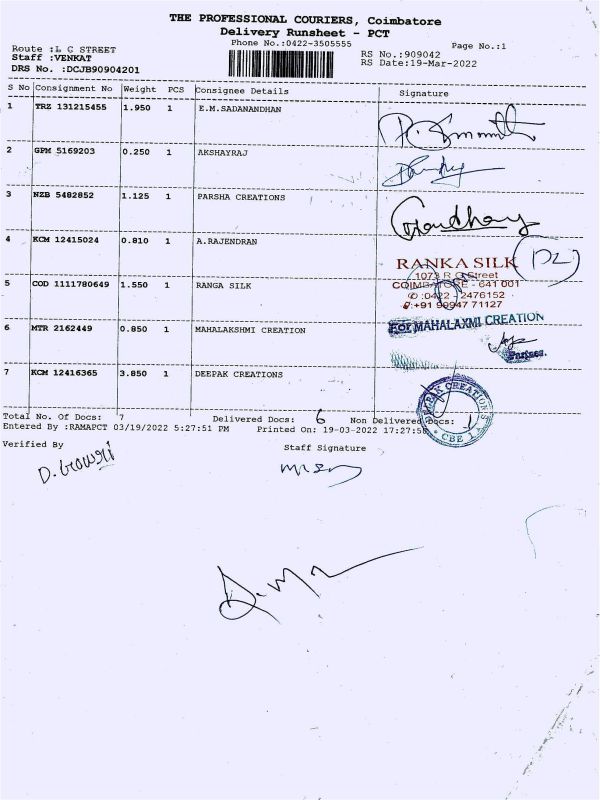 THE PROFESSIONAL COURIERS, Coimbatore
Delivery Runsheet - PCT
Phone No.:0422-3505555
Page No.:1
Route :L C STREET
Staff :VENKAT
DRS No. :DCJB90904201
RS No.:909042
RS Date:19-Mar-2022
S No Consignment No Weight PCS Consignee Details Signature
1 TRZ 131215455 1.950 1 E.M.SADANANDHAN
2 GPM 5169203 0.250 1 AKSHAYRAJ
3 NZB 5482852 1.125 1 PARSHA CREATIONS
4 KCM 12415024 0.810 1 A.RAJENDRAN
RANKA SILK
1073 R G Street
COIMBATORE - 641 001
5 COD 1111780649 1.550 1 RANGA SILK
✆ :0422 - 2476152
:+91 99947 71127
6 MTR 2162449 0.850 1 MAHALAKSHMI CREATION
For MAHALAXMI CREATION
Partner.
7 KCM 12416365 3.850 1 DEEPAK CREATIONS
DEEPAK CREATIONS
CBE 1
Total No. Of Docs: 7 Delivered Docs: 6 Non Delivered Docs: 1
Entered By :RAMAPCT 03/19/2022 5:27:51 PM Printed On: 19-03-2022 17:27:58
Verified By Staff Signature
D. Gowri